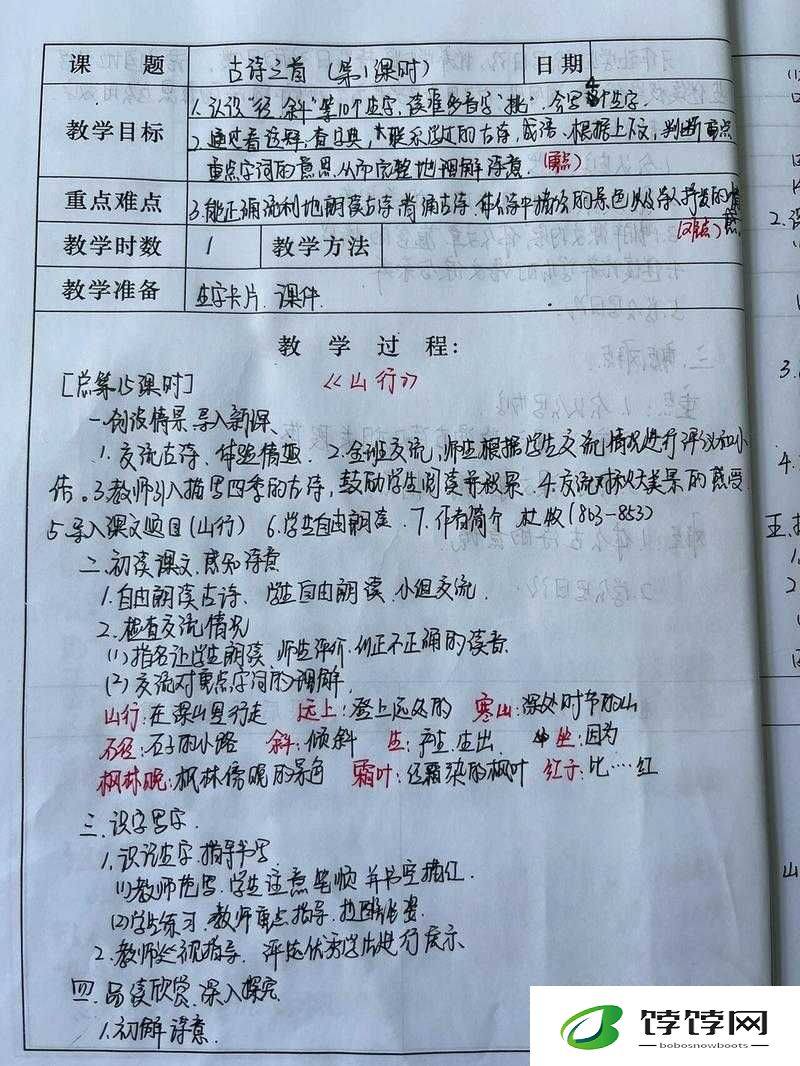 课 题 古诗三首（第1课时） 日期
教学目标 1.认识“径、斜”等10个生字，读准多音字“挑”，会写4个生字.
2.通过看注释，查字典，联系学过的古诗，成语，根据上下文，判断重点
重点字词的意思，从而完整地理解诗意.（重点）
重点难点 3.能正确流利地朗读古诗，背诵古诗，体会诗中描绘的景色以及诗人抒发的情感.（难点）
教学时数 1 教学方法
教学准备 生字卡片、课件.
教 学 过 程：
[总第15课时] 《山行》
一.创设情景 导入新课.
1.交流古诗、体验情趣. 2.全班交流，师生根据学生交流情况进行评议和小
结。3.教师引入描写四季的古诗，鼓励学生阅读并积累. 4.交流对秋天美景的感受
5.导入课文题目(山行) 6.学生自由朗读. 7.作者简介 杜牧(803-853)
二.初读课文.感知诗意
1.自由朗读古诗、学生自由朗读.小组交流.
2.检查交流情况
(1)指名让学生朗读.师生评价.纠正不正确的读音.
(2)交流对重点字词的理解.
山行:在深山里行走 远上:登上远处的 寒山:深处时节的山
石径:石子的小路 斜:倾斜 生:产生.生出. 坐:因为
枫林晚:枫林傍晚的景色 霜叶:经霜染的枫叶 红于:比……红
三.识字写字.
1.识记生字.指导书写
(1)教师范写.学生注意笔顺 并书空描红.
(2)学生练习.教师重点指导.
2.教师巡视指导. 评选优秀学生进行展示.
四.品读欣赏.深入探究
1.初解诗意.
饽饽网
bobosnowboots.com